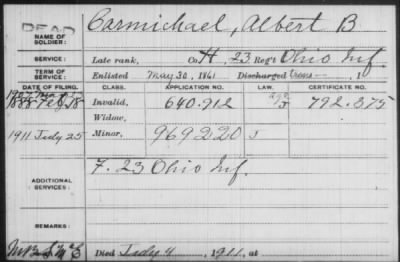 DEAD
NAME OF SOLDIER: Carmichael, Albert B
SERVICE: Late rank, Co H, 23 Reg't Ohio Inf
TERM OF SERVICE: Enlisted May 30, 1861 Discharged , 1
DATE OF FILING. CLASS. APPLICATION NO. LAW. CERTIFICATE NO.
1888 Feb 18 Invalid, 640.912 792.375
Widow,
1911 July 25 Minor, 969220 S
ADDITIONAL SERVICES: F. 23 Ohio Inf.
REMARKS:
Died July 4, 1911, at